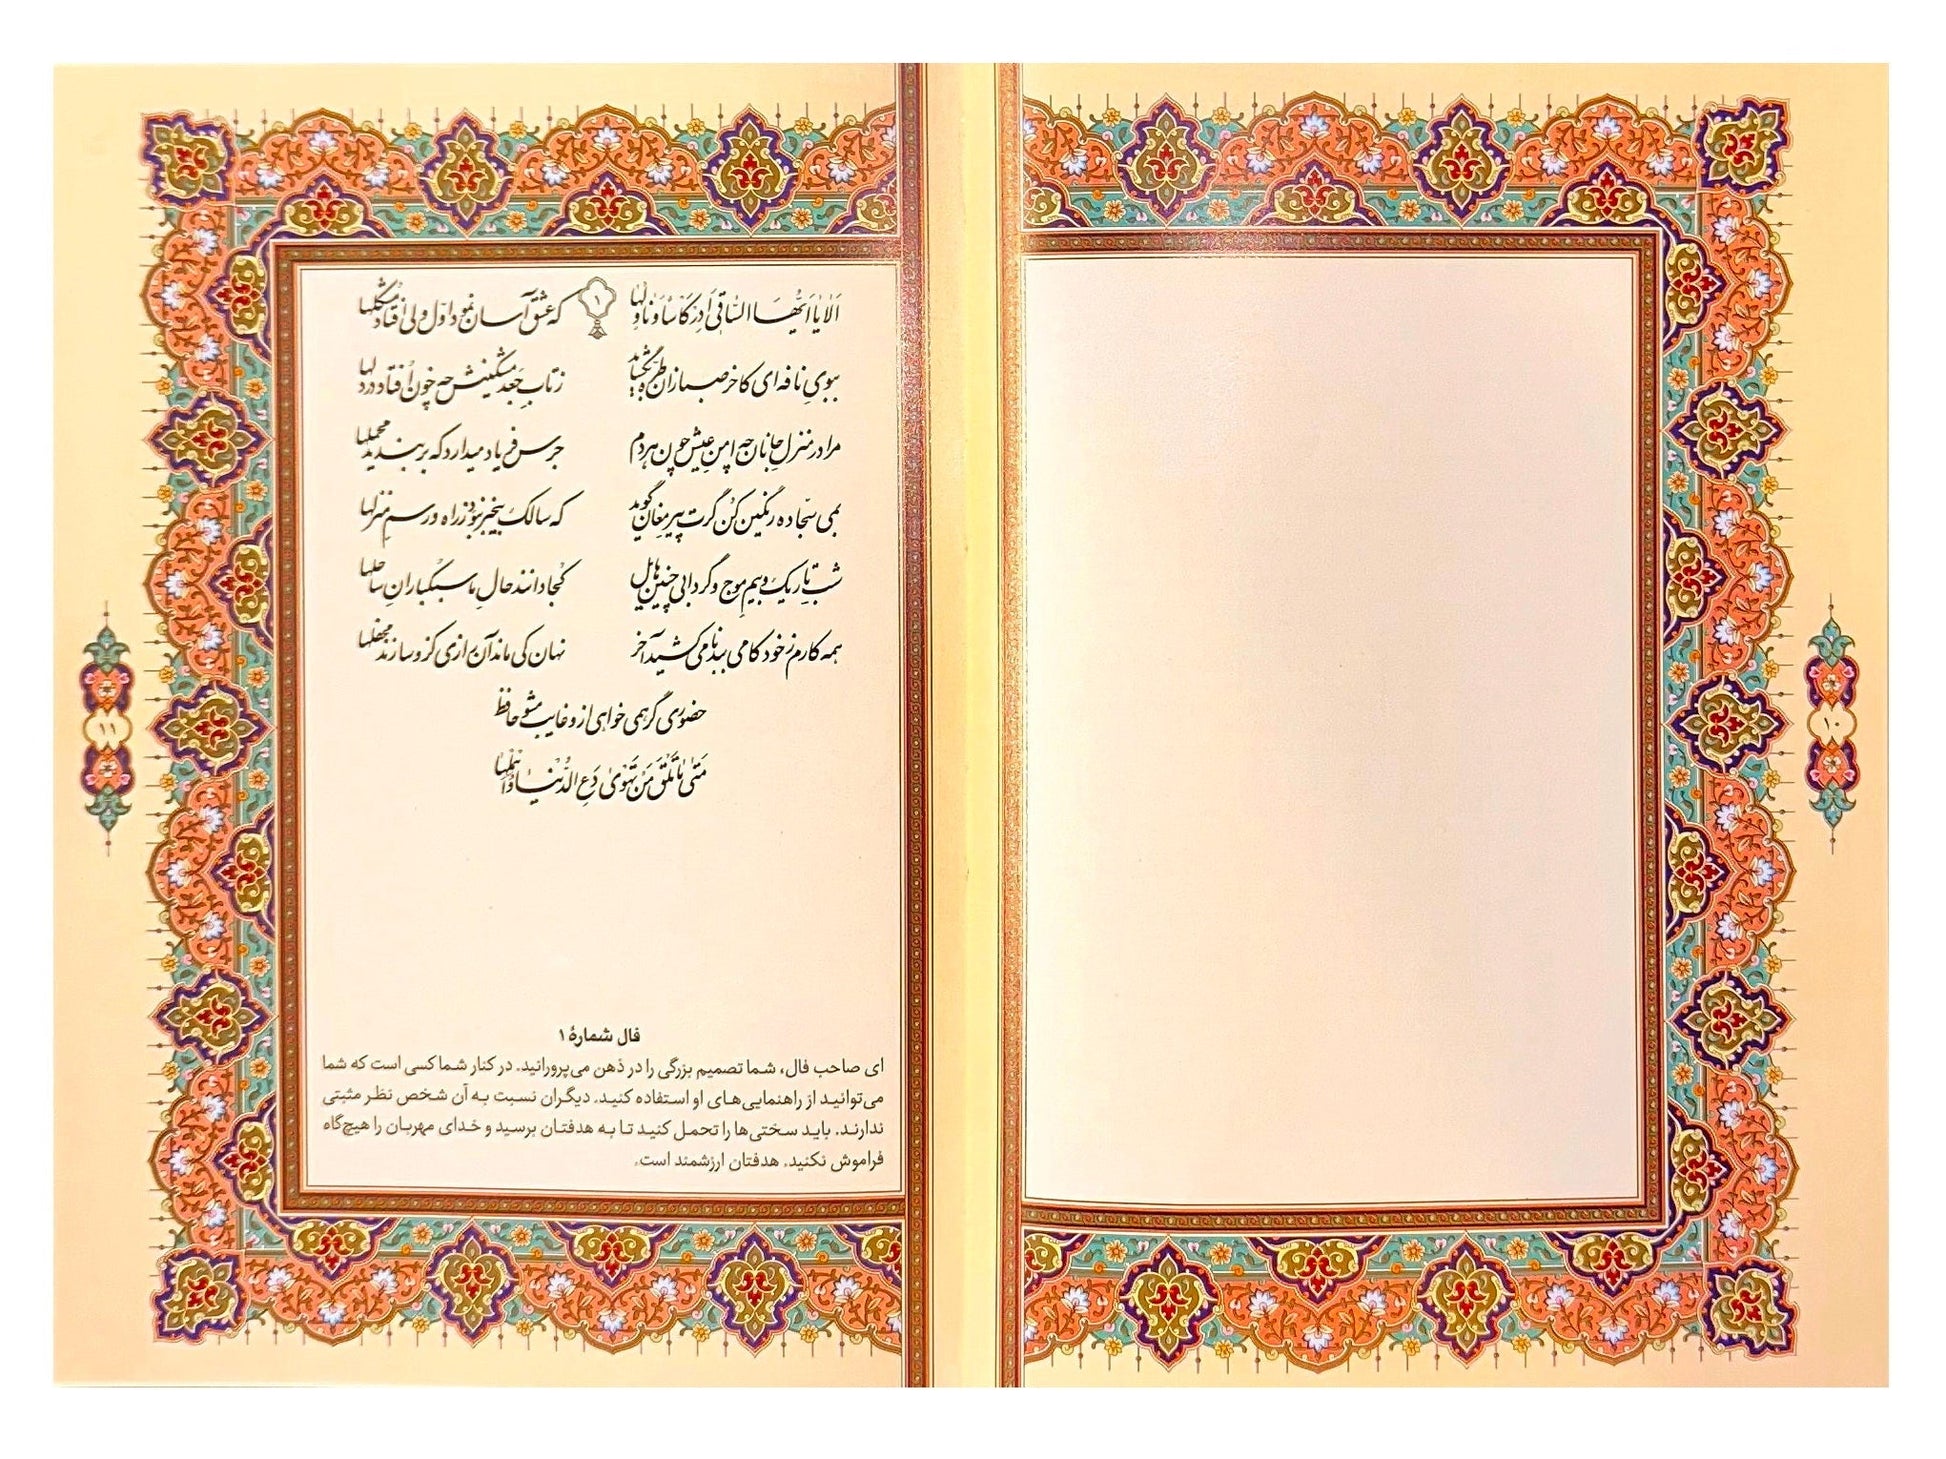 ۱۰
۱
اَلا یا اَیُّهَا السّاقی اَدِرْ کَاْساً وَ ناوِلْها که عشق آسان نمود اوّل ولی اُفتاد مُشکلها
ببویِ نافه‌ای کاخر صبا زان طُرّه بگشاید ز تابِ جَعدِ مشکینش چه خون اُفتاد در دلها
مرا در منزلِ جانان چه امنِ عیش چون هر دم جرس فریاد میدارد که بربندید محملها
بمی سجّاده رنگین کُن گرت پیرِ مغان گوید که سالک بیخبر نبوَد ز راه و رسمِ منزلها
شبِ تاریک و بیمِ موج و گردابی چنین هایل کجا دانند حالِ ما سبکبارانِ ساحلها
همه کارم ز خود کامی ببدنامی کشید آخر نهان کی ماند آن رازی کزو سازند محفلها
حضوری گر همی خواهی ازو غایب مشو حافظ
مَتیٰ ما تَلْقَ مَنْ تَهْویٰ دَعِ الدُّنْیا وَ اَهْمِلْها
فال شمارهٔ ۱
ای صاحب فال، شما تصمیم بزرگی را در ذهن می‌پرورانید. در کنار شما کسی است که شما
می‌توانید از راهنمایی‌های او استفاده کنید. دیگران نسبت به آن شخص نظر مثبتی
ندارند. باید سختی‌ها را تحمل کنید تا به هدفتان برسید و خدای مهربان را هیچ‌گاه
فراموش نکنید. هدفتان ارزشمند است.
۱۱